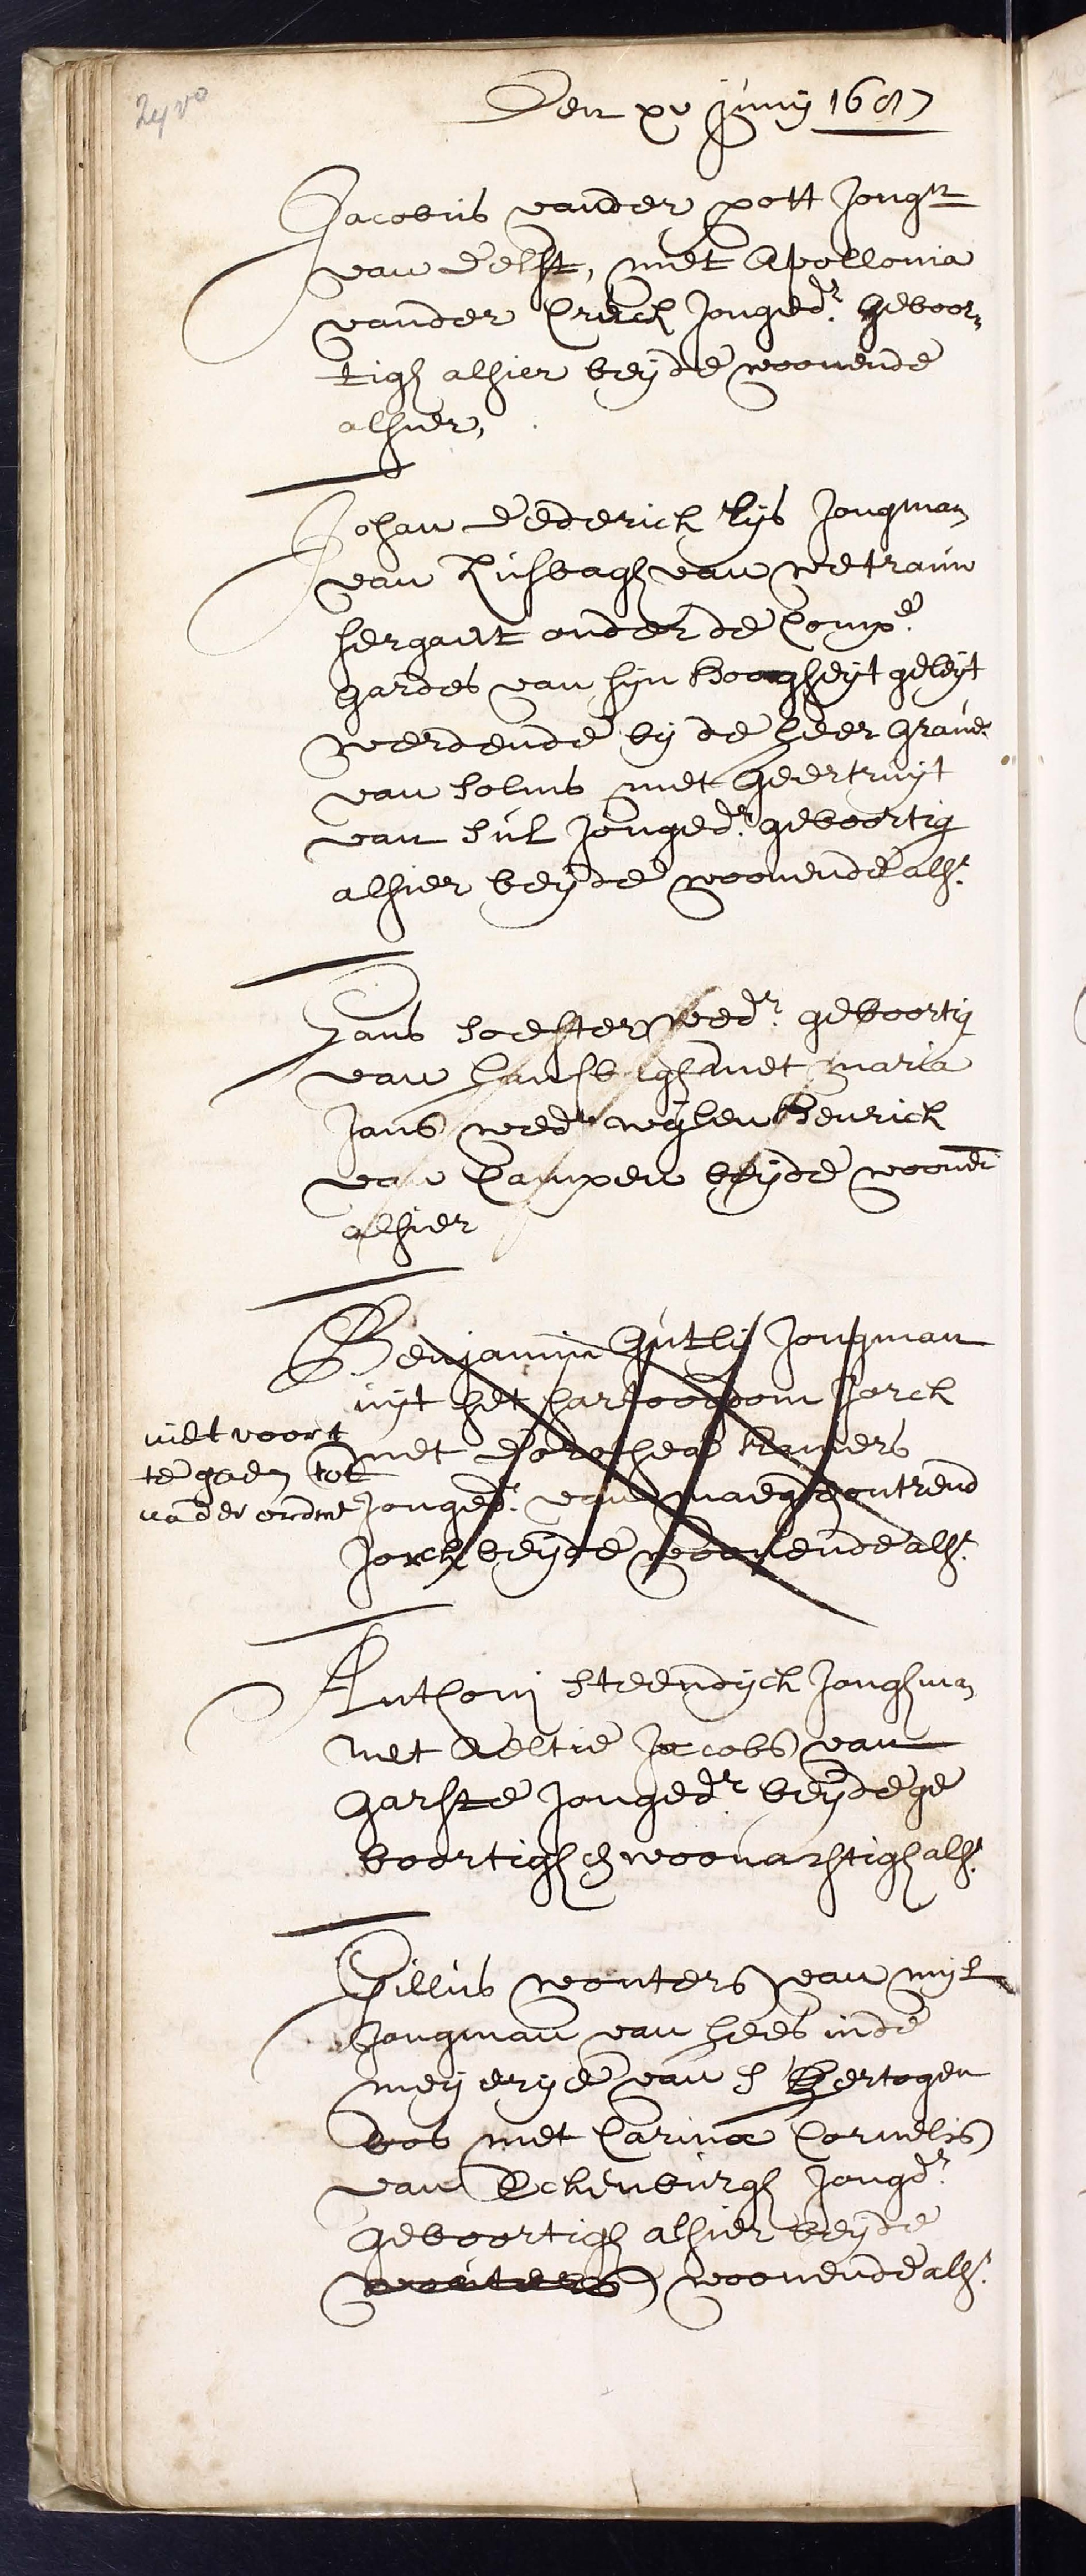 24 vo
Den xv junij 1687
Jacobus vander pott Jongm
van delft, met Apollonia
vander Creck Jongedr. geboor„
tigh alhier beijde woonende
alhier,
Johan dederich Lijs Jongman
van van wetrauw
sergant onder de Compe.
gardes van sijn Hoogheijt geleijt
werdende bij de heer Grave
van solms met Geertruijt
van Sul Jongedr. geboortig
alhier beijde woonende alhr.
Hans wedr. geboortig
van met maria
Jans wede wijlen Henrich
van Campen beijde woonen
alhier
Benjamin Gutli Jongman
uijt het hartoogdom Jorck
met dorothea Reniers
niet voort
te gaen tot
nader ordre
Jongedr. van ontrend
Jorck beijde woonende alhr.
Anthonij Steendijck Jonghman
met Aeltie Jacobs van
garste Jongedr beijde ge
boortigh en woonachtigh alhr.
Gillus wouters van mijl
Jongman van hees inde
meijerije van s Hertogen
bos met Carina Cornelis
van Jongdr.
geboortigh alhier beijde
wouters woonende alhr.